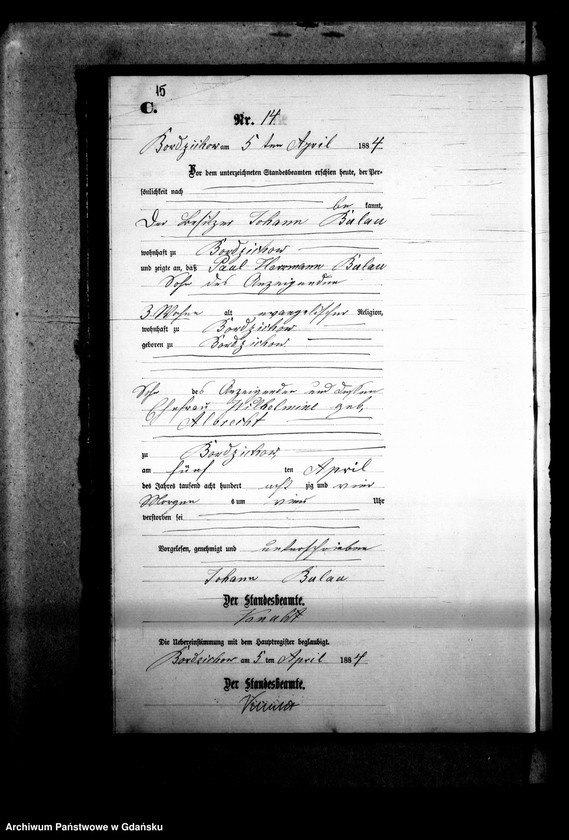 15
C.
Nr. 14.
Bordzichow am 5 ten April 1884.
Vor dem unterzeichneten Standesbeamten erschien heute, der Per-
sönlichkeit nach
be kannt,
Der Besitzer Johann Bulau
wohnhaft zu Bordzichow
und zeigte an, daß Paul Herrmann Bulau
Sohn des Anzeigenden
3 Woche alt evangelischer Religion,
wohnhaft zu Bordzichow
geboren zu Bordzichow
Sohn des Anzeigenden und dessen
Ehefrau Wilhelmine geb.
Albrecht
zu Bordzichow
am fünf ten April
des Jahres tausend acht hundert acht zig und vier
Morgen s um vier Uhr
verstorben sei
Vorgelesen, genehmigt und unterschrieben
Johann Bulau
Der Standesbeamte.
Die Uebereinstimmung mit dem Hauptregister beglaubigt.
Bordzichow am 5 ten April 1884
Der Standesbeamte.
Archiwum Państwowe w Gdańsku